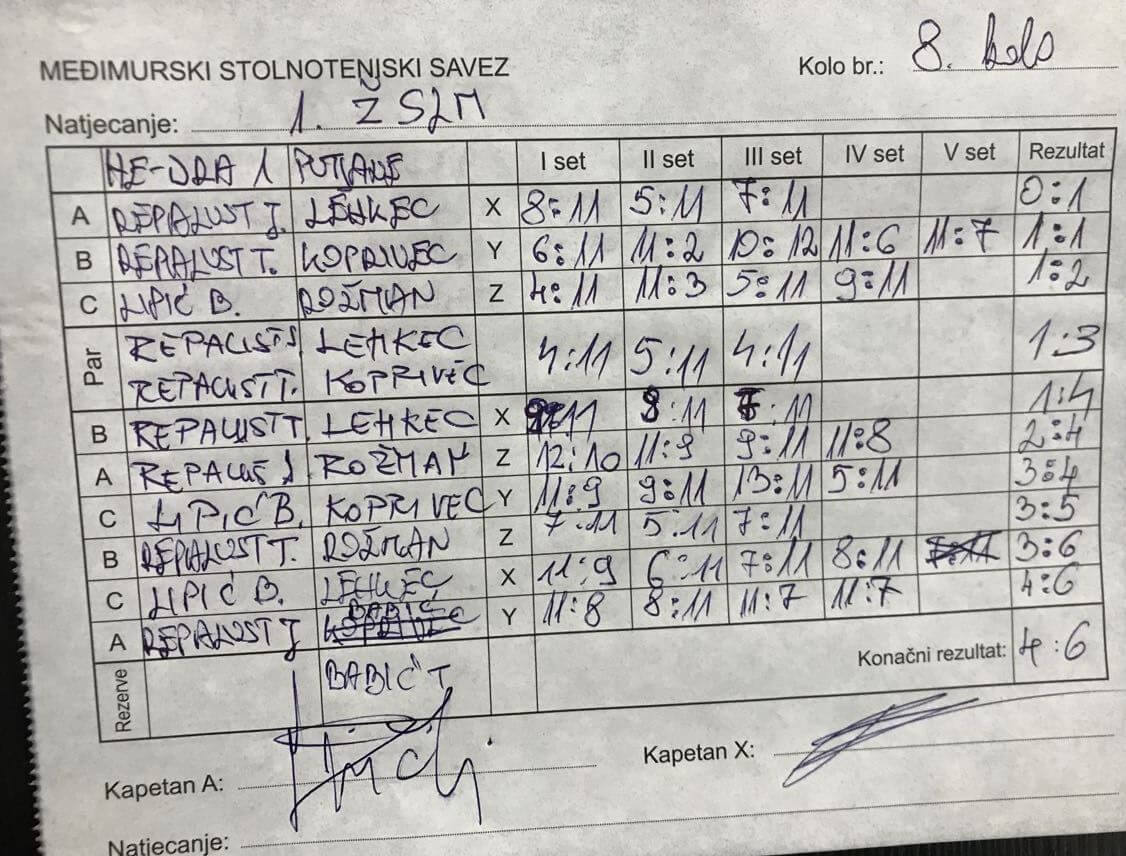 MEĐIMURSKI STOLNOTENISKI SAVEZ
Kolo br.: 8. kolo
Natjecanje: 1. ŽSLM
HE-DRA 1 PUTJANE I set II set III set IV set V set Rezultat
A REPALUST J. LEHKEC X 8:11 5:11 7:11 0:1
B REPALUST T. KOPRIVEC Y 6:11 11:2 10:12 11:6 11:7 1:1
C LIPIĆ B. ROŽMAN Z 4:11 11:3 5:11 9:11 1:2
Par REPALUST J LEHKEC 4:11 5:11 4:11 1:3
REPALUST T. KOPRIVEC
B REPALUST T. LEHKEC X :11 8:11 :11 1:4
A REPALUS J ROŽMAN Z 12:10 11:9 9:11 11:8 2:4
C LIPIĆ B. KOPRIVEC Y 11:9 9:11 13:11 5:11 3:4
B REPALUST T. ROŽMAN Z 7:11 5:11 7:11 3:5
C LIPIĆ B. LEHKEC X 11:9 6:11 7:11 8:11 3:6
A REPALUST J BABIĆ Y 11:8 8:11 11:7 11:7 4:6
Rezerve BABIĆ T Konačni rezultat: 4:6
Kapetan A: Kapetan X:
Natjecanje: